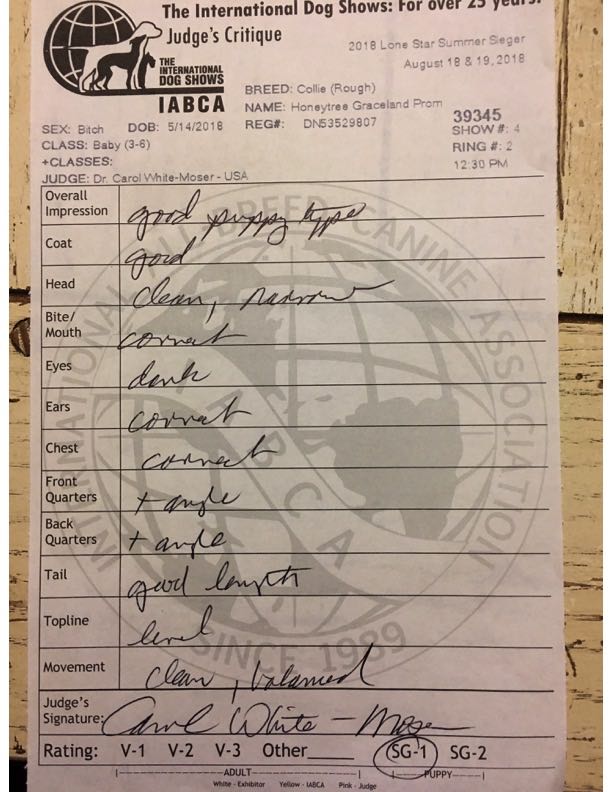 The International Dog Shows: For over 25 years.
Judge's Critique
THE
INTERNATIONAL
DOG SHOWS
IABCA
2018 Lone Star Summer Sieger
August 18 & 19, 2018
BREED: Collie (Rough)
NAME: Honeytree Graceland Prom
SEX: Bitch DOB: 5/14/2018 REG#: DN53529807
39345
SHOW #: 4
CLASS: Baby (3-6)
RING #: 2
+CLASSES:
12:30 PM
JUDGE: Dr. Carol White-Moser - USA
Overall
Impression good puppy type
Coat good
Head clean, narrow
Bite/
Mouth correct
Eyes dark
Ears correct
Chest correct
Front
Quarters + angle
Back
Quarters + angle
Tail good length
Topline level
Movement clean, balanced
Judge's
Signature: Carol White-Moser
Rating: V-1 V-2 V-3 Other____ SG-1 SG-2
ADULT PUPPY
White - Exhibitor Yellow - IABCA Pink - Judge
INTERNATIONAL ALL BREED CANINE ASSOCIATION
IABCA
SINCE 1989